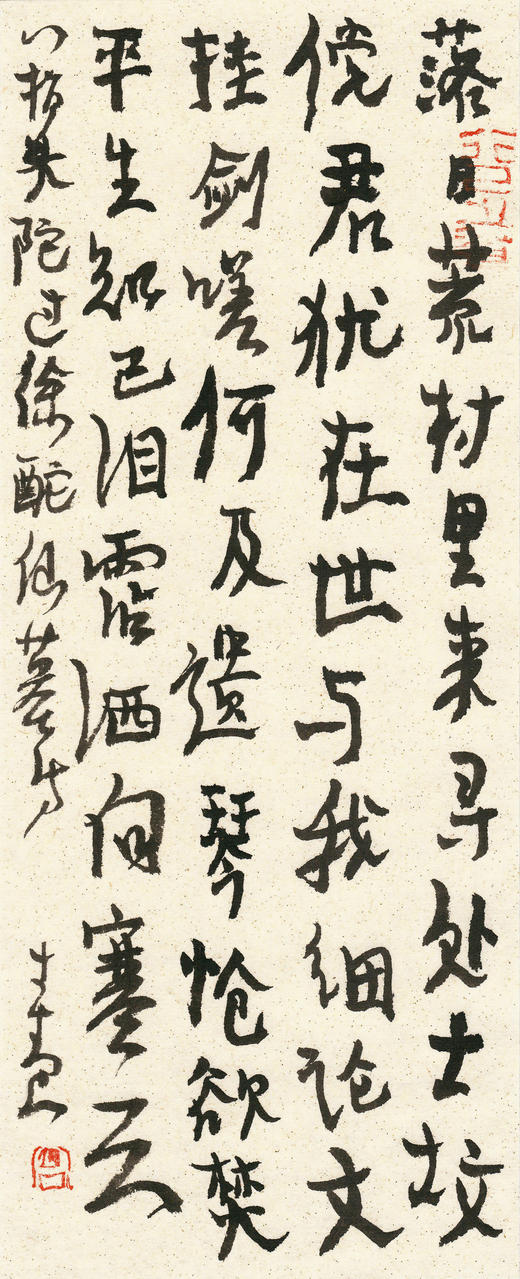 落日荒村里来寻处士坟
傥君犹在世与我细论文
挂剑嗟何及遗琴怆欲焚
平生知己泪霑洒向寒云
八指头陀过徐酡仙墓